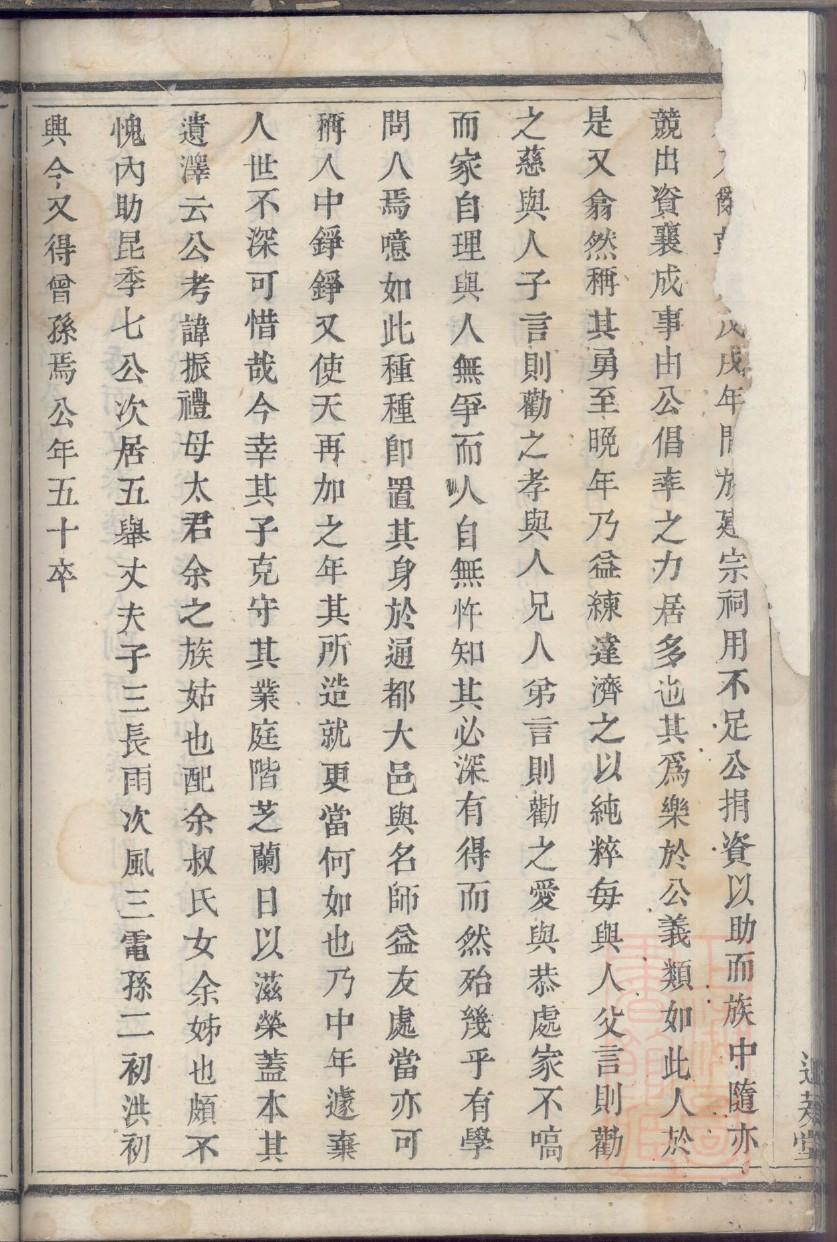 戊戌年間族建宗祠用不足公捐資以助而族中隨亦
競出資襄成事由公倡率之力居多也其爲樂於公義類如此人於
是又翕然稱其勇至晚年乃益練達濟之以純粹每與人父言則勸
之慈與人子言則勸之孝與人兄人弟言則勸之愛與恭處家不嗃
而家自理與人無爭而人自無忤知其必深有得而然殆幾乎有學
問人焉噫如此種種卽置其身於通都大邑與名師益友處當亦可
稱人中錚錚又使天再加之年其所造就更當何如也乃中年遽棄
人世不深可惜哉今幸其子克守其業庭階芝蘭日以滋榮蓋本其
遺澤云公考諱振禮母太君余之族姑也配余叔氏女余姊也頗不
愧內助昆季七公次居五舉丈夫子三長雨次風三電孫二初洪初
興今又得曾孫焉公年五十卒